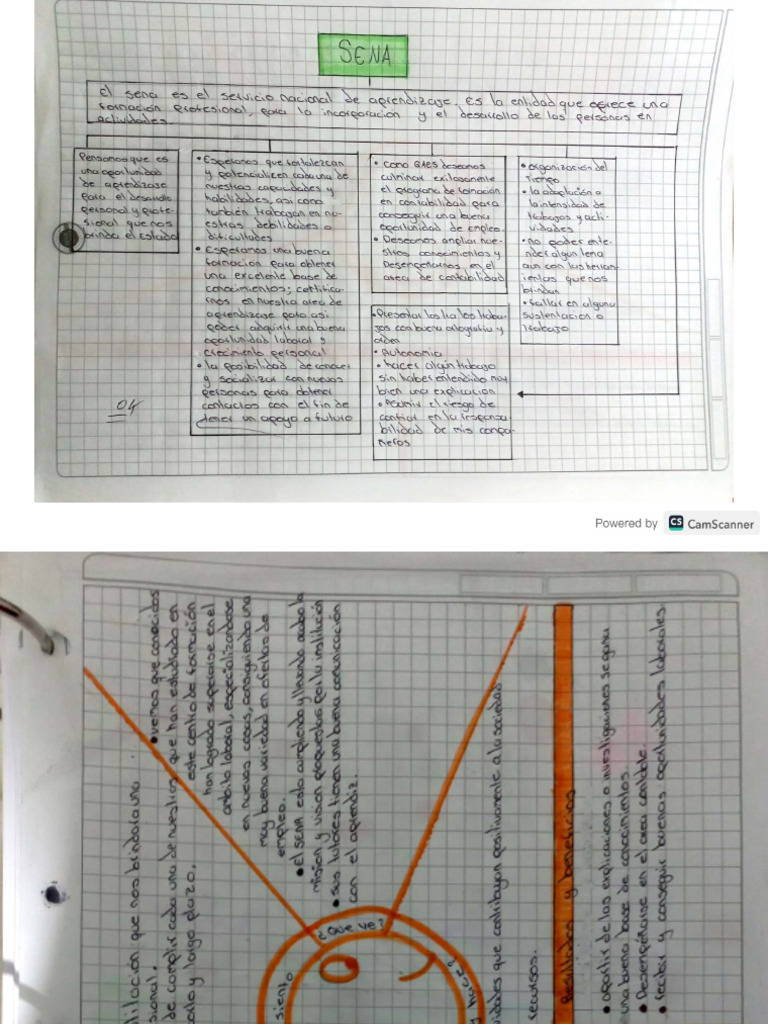 SENA
El sena es el servicio nacional de aprendizaje, es la entidad que ofrece una
formación profesional, para la incorporación y el desarrollo de las personas en
actividades.
Pensamos que es
una oportunidad
de aprendizaje
para el desarrollo
personal y profe-
sional que nos
brinda el estado
• Esperamos que fortalezcan
y potencialicen cada una de
nuestras capacidades y
habilidades, asi como
tambien trabajar en nu-
estras debilidades o
dificultades
• Esperamos una buena
formación para obtener
una excelente base de
conocimientos; certifica-
rnos en nuestra area de
aprendizaje para asi
poder adquirir una buena
oportunidad laboral y
crecimiento personal
• la posibilidad de conocer
y socializar con nuevas
personas para obtener
contactos con el fin de
tener un apoyo a futuro
• como GAES deseamos
culminar exitosamente
el programa de formacion
en contabilidad para
conseguir una buena
oportunidad de empleo.
• Deseamos ampliar nue-
stros conocimientos y
Desempeñarnos en el
area de contabilidad
• Presentar los traba-
jos con buena ortografia y
orden
• Autonomia
• hacer algun trabajo
sin haber entendido muy
bien una explicacion
• Asumir el riesgo de
confiar en la responsa-
bilidad de mis compa-
ñeros
• organización del
Tiempo
• la adaptación a
la intensidad de
trabajos y acti-
vidades
• no poder ente-
nder algun tema
aun con las herram-
ientas que nos
brindan
• fallar en alguna
sustentacion o
trabajo
04
Powered by CS CamScanner
• vemos que conocidos
que han estudiado en
este centro de formación
han logrado superarse en el
ambito laboral, especializandose
en nuevas cosas, consiguiendo una
muy buena variedad en ofertas de
empleo.
• el SENA esta cumpliendo y llevando acabo la
mision y vision propuestas por la institución
• sus tutores tienen una buena comunicación
con el aprendiz.
que nos brindara una
sional.
de cumplir cada una de nuestros
y largo plazo.
¿Que ve?
siento
y hace?
que contribuyan positivamente a la sociedad
recursos.
Resultados y beneficios
• apartir de las explicaciones e investigaciones seguru
una buena base de conocimientos.
• Desempeñarse en el area contable.
• recibir y conseguir buenas oportunidades laborales.